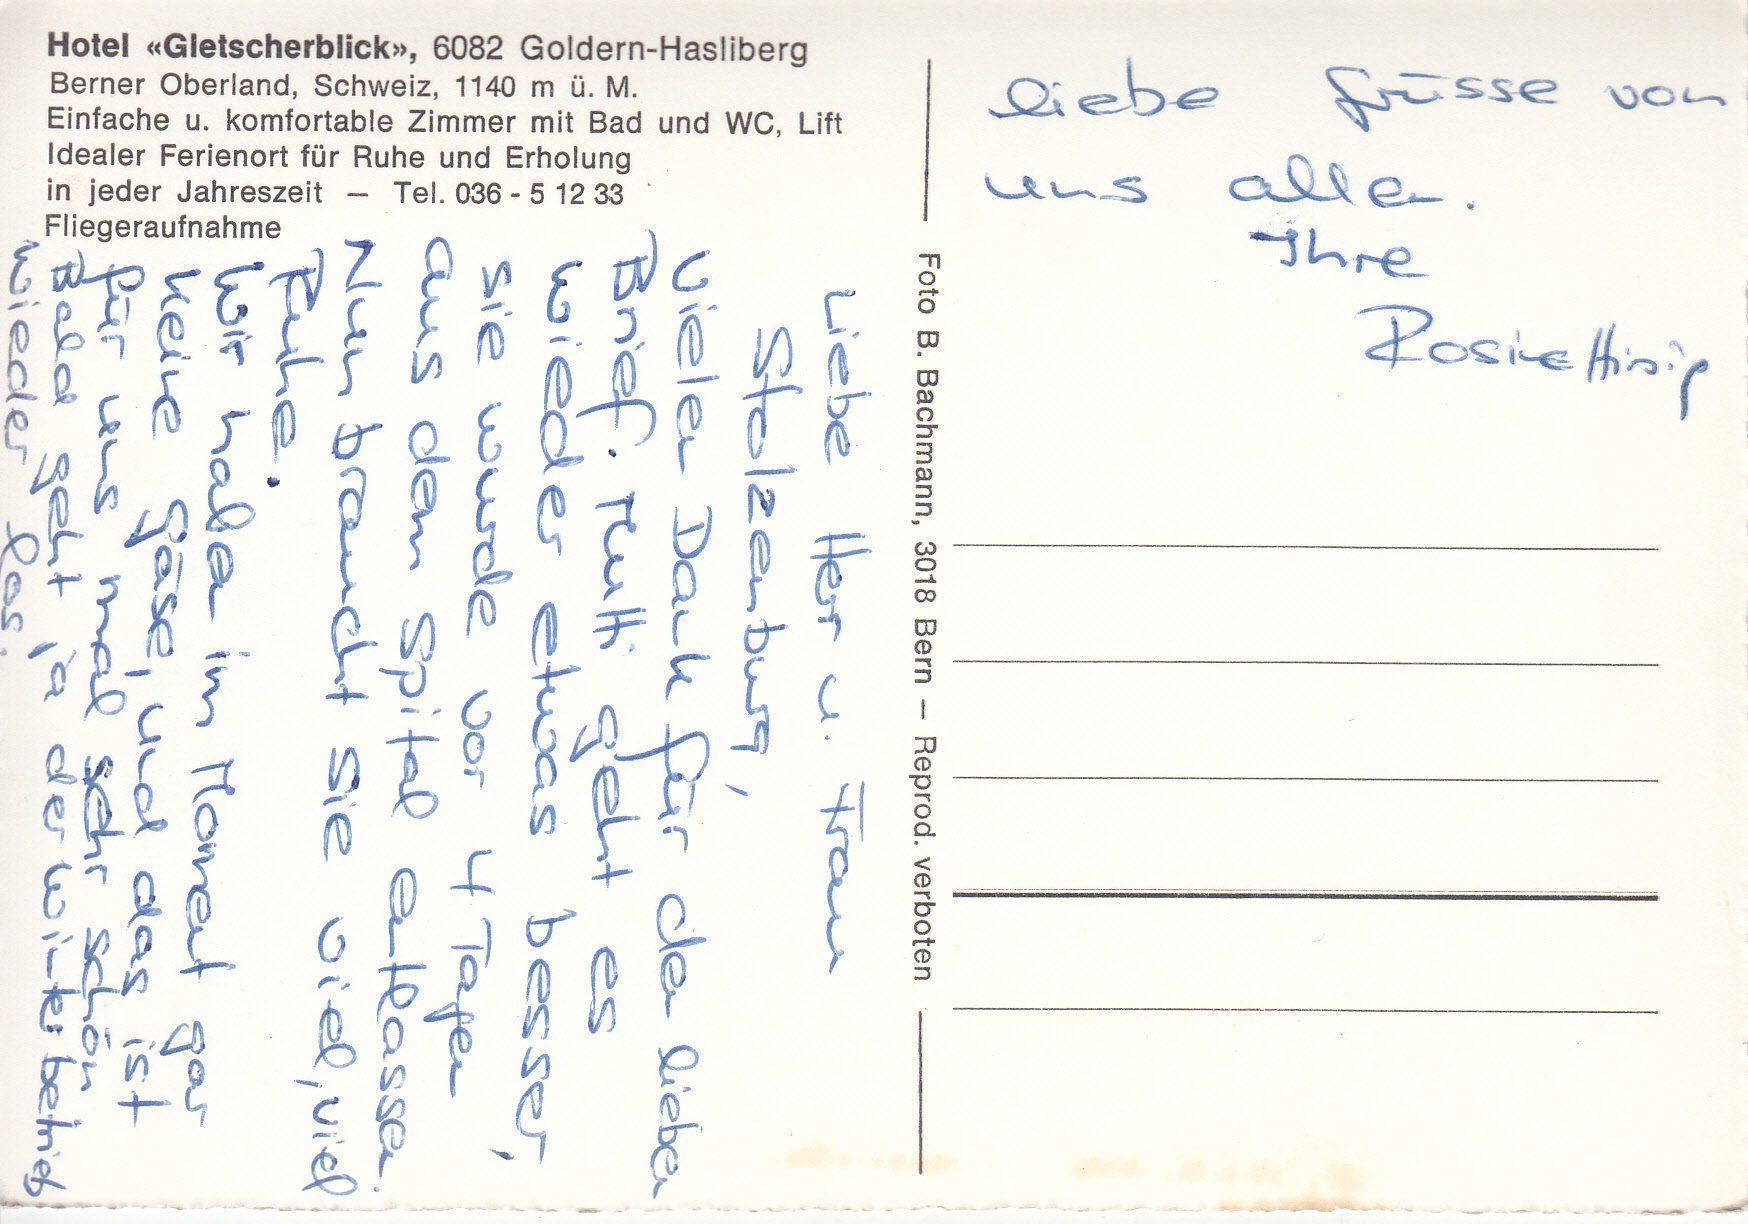 Hotel «Gletscherblick», 6082 Goldern-Hasliberg
Berner Oberland, Schweiz, 1140 m ü. M.
Einfache u. komfortable Zimmer mit Bad und WC, Lift
Idealer Ferienort für Ruhe und Erholung
in jeder Jahreszeit – Tel. 036 - 5 12 33
Fliegeraufnahme
Liebe Herr u. Frau
Stolzenburg,
Vielen Dank für den lieben
Brief. Ruth geht es
wieder etwas besser,
sie wurde vor 4 Tagen
aus dem Spital entlassen.
Nun braucht Sie viel, viel
Ruhe.
Wir haben im Moment gar
keine Gäse, und das ist
für uns mal sehr schön
Bald geht ja der Winterbetrieb
wieder los.
Foto B. Bachmann, 3018 Bern – Reprod. verboten
liebe Grüsse von
uns allen.
Ihre